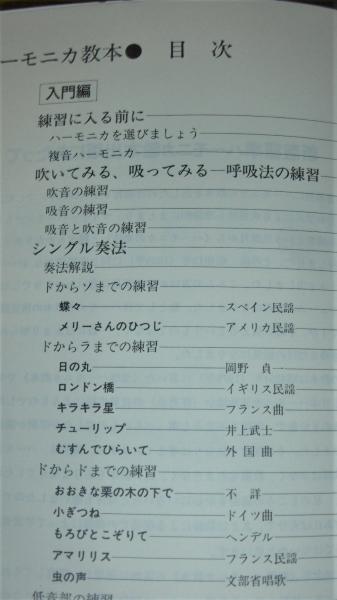 ーモニカ教本● 目次
入門編
練習に入る前に
ハーモニカを選びましょう
複音ハーモニカ
吹いてみる、吸ってみる—呼吸法の練習
吹音の練習
吸音の練習
吸音と吹音の練習
シングル奏法
奏法解説
ドからソまでの練習
蝶々 スペイン民謡
メリーさんのひつじ アメリカ民謡
ドからラまでの練習
日の丸 岡野 貞
ロンドン橋 イギリス民謡
キラキラ星 フランス曲
チューリップ 井上武士
むすんでひらいて 外国曲
ドからドまでの練習
おおきな栗の木の下で 不詳
小ぎつね ドイツ曲
もろびとこぞりて ヘンデル
アマリリス フランス民謡
虫の声 文部省唱歌
低音部の練習